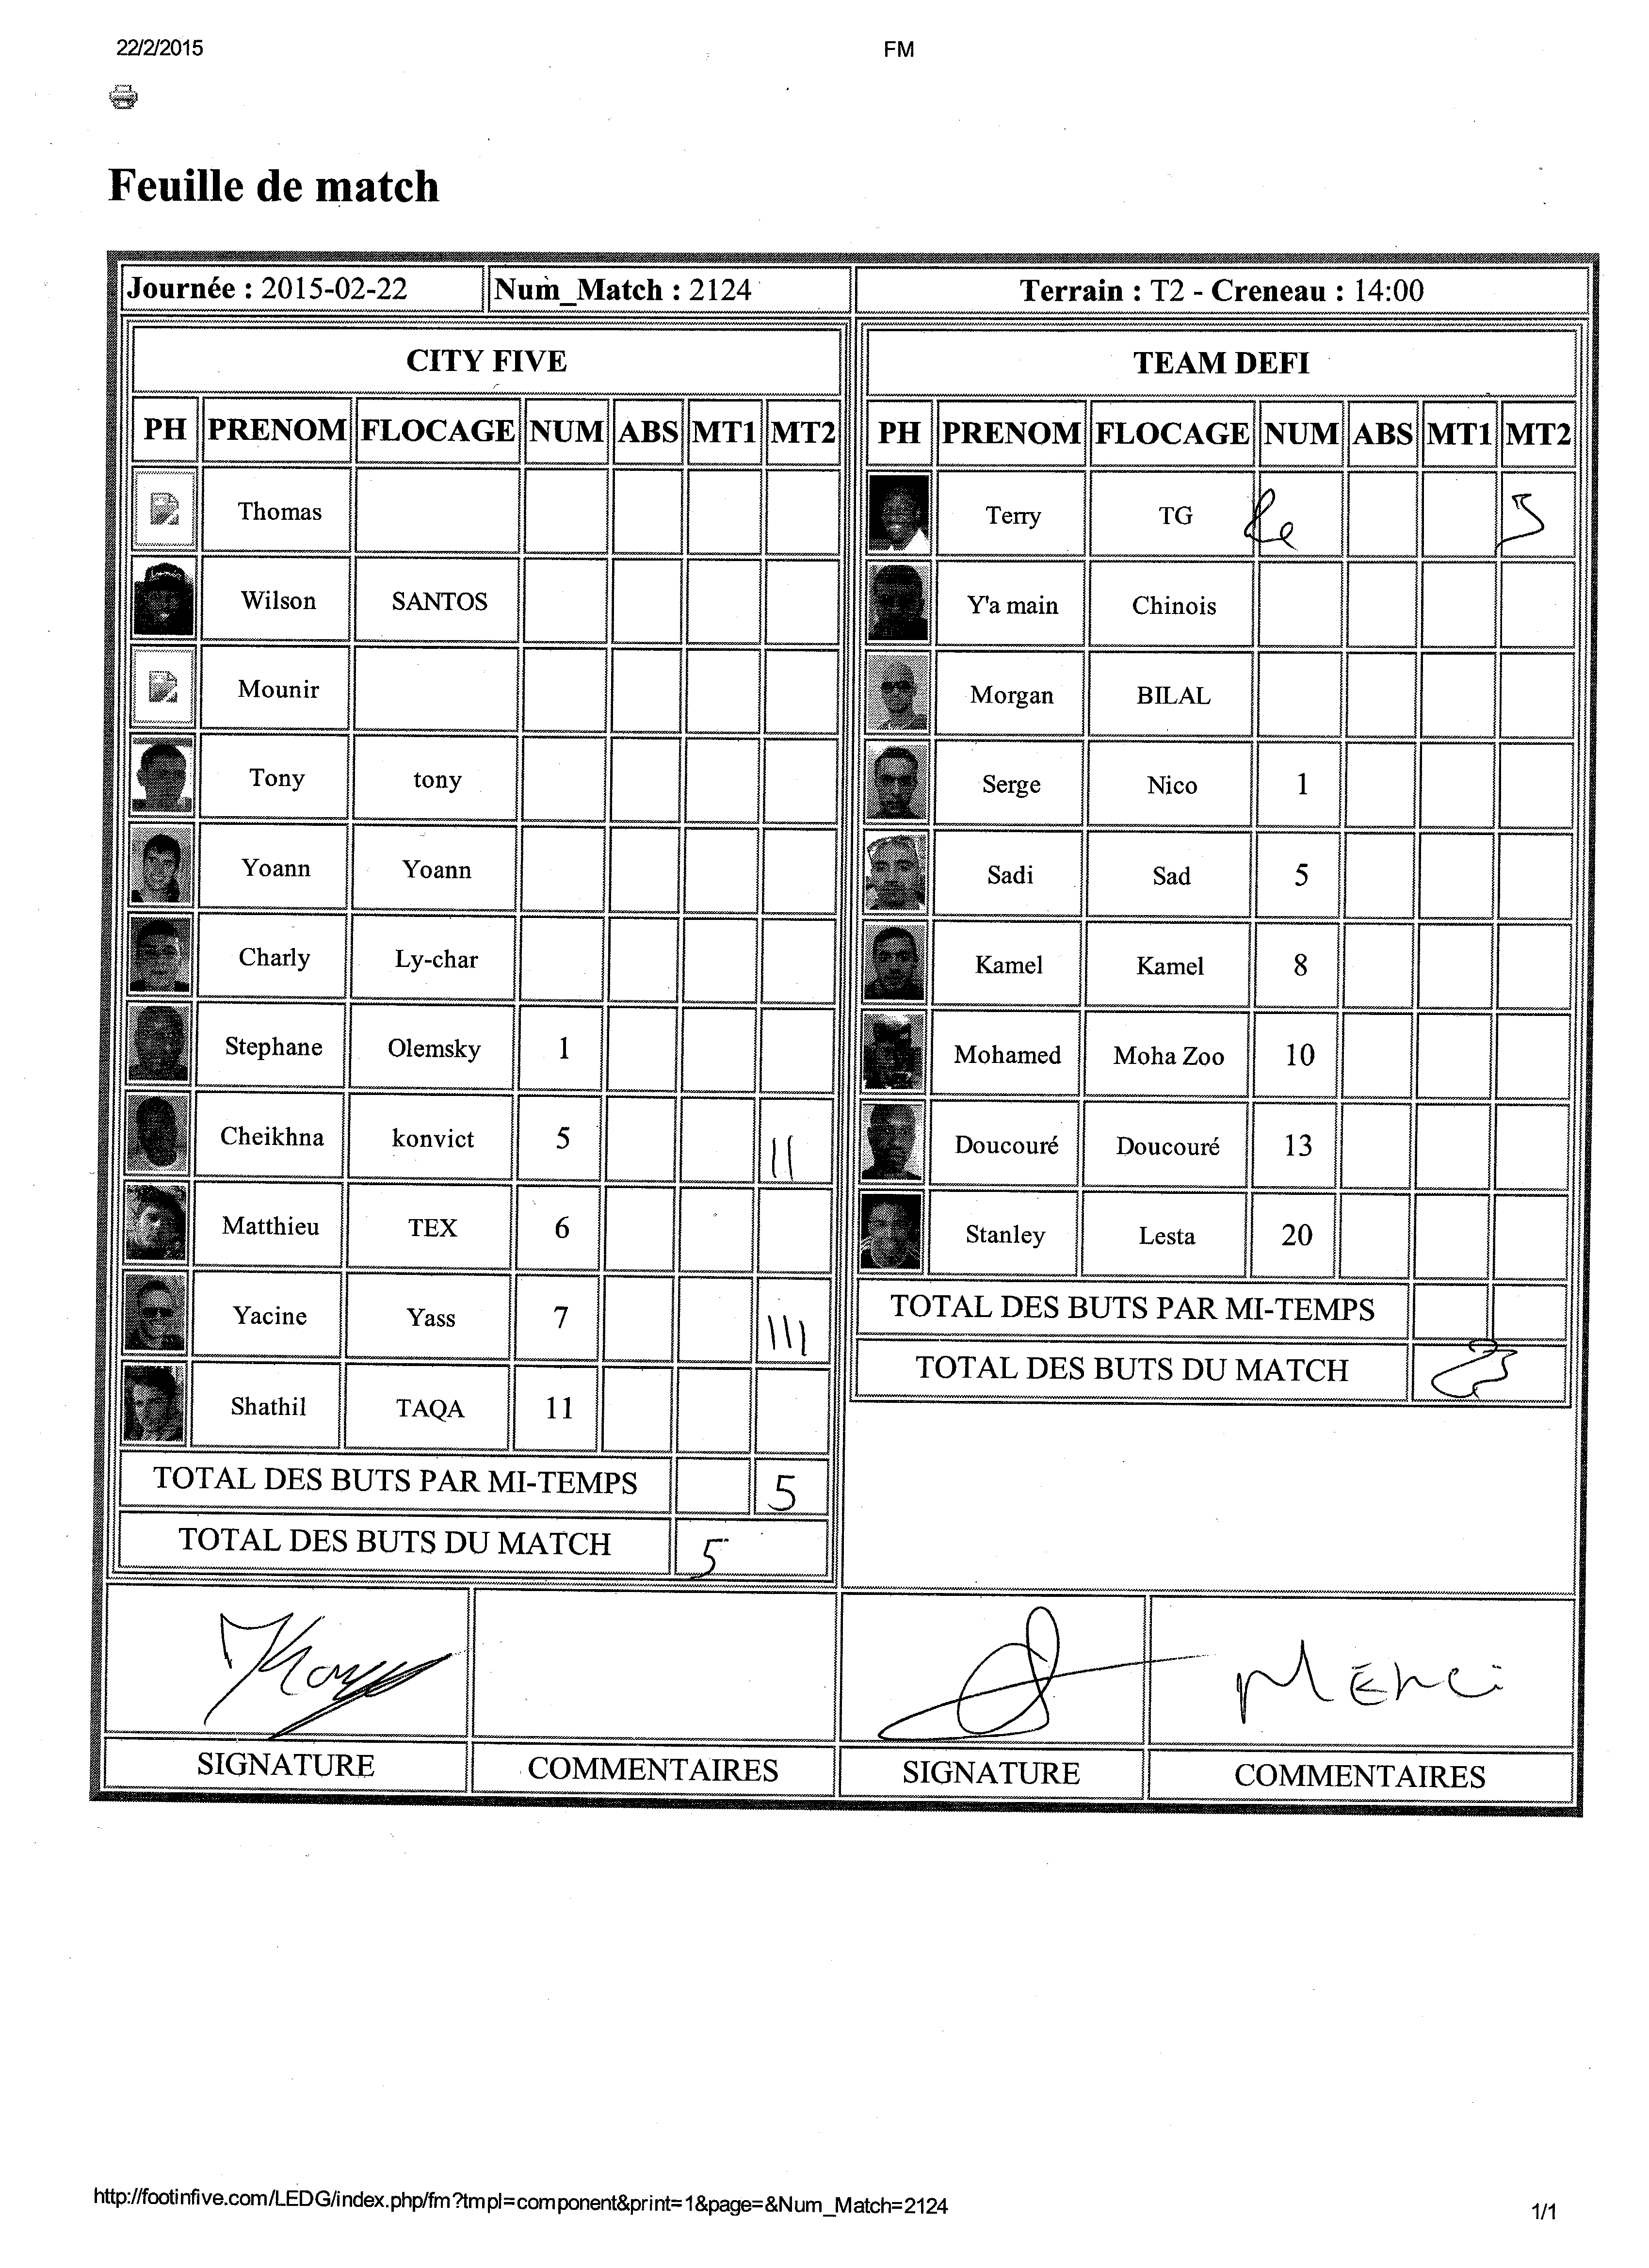 22/2/2015 FM
Feuille de match
Journée : 2015-02-22 Num_Match : 2124 Terrain : T2 - Creneau : 14:00
CITY FIVE
PH PRENOM FLOCAGE NUM ABS MT1 MT2
Thomas
Wilson SANTOS
Mounir
Tony tony
Yoann Yoann
Charly Ly-char
Stephane Olemsky 1
Cheikhna konvict 5 ||
Matthieu TEX 6
Yacine Yass 7 |||
Shathil TAQA 11
TOTAL DES BUTS PAR MI-TEMPS 5
TOTAL DES BUTS DU MATCH 5
TEAM DEFI
PH PRENOM FLOCAGE NUM ABS MT1 MT2
Terry TG
Y'a main Chinois
Morgan BILAL
Serge Nico 1
Sadi Sad 5
Kamel Kamel 8
Mohamed Moha Zoo 10
Doucouré Doucouré 13
Stanley Lesta 20
TOTAL DES BUTS PAR MI-TEMPS
TOTAL DES BUTS DU MATCH
MErci
SIGNATURE COMMENTAIRES SIGNATURE COMMENTAIRES
http://footinfive.com/LEDG/index.php/fm?tmpl=component&print=1&page=&Num_Match=2124 1/1